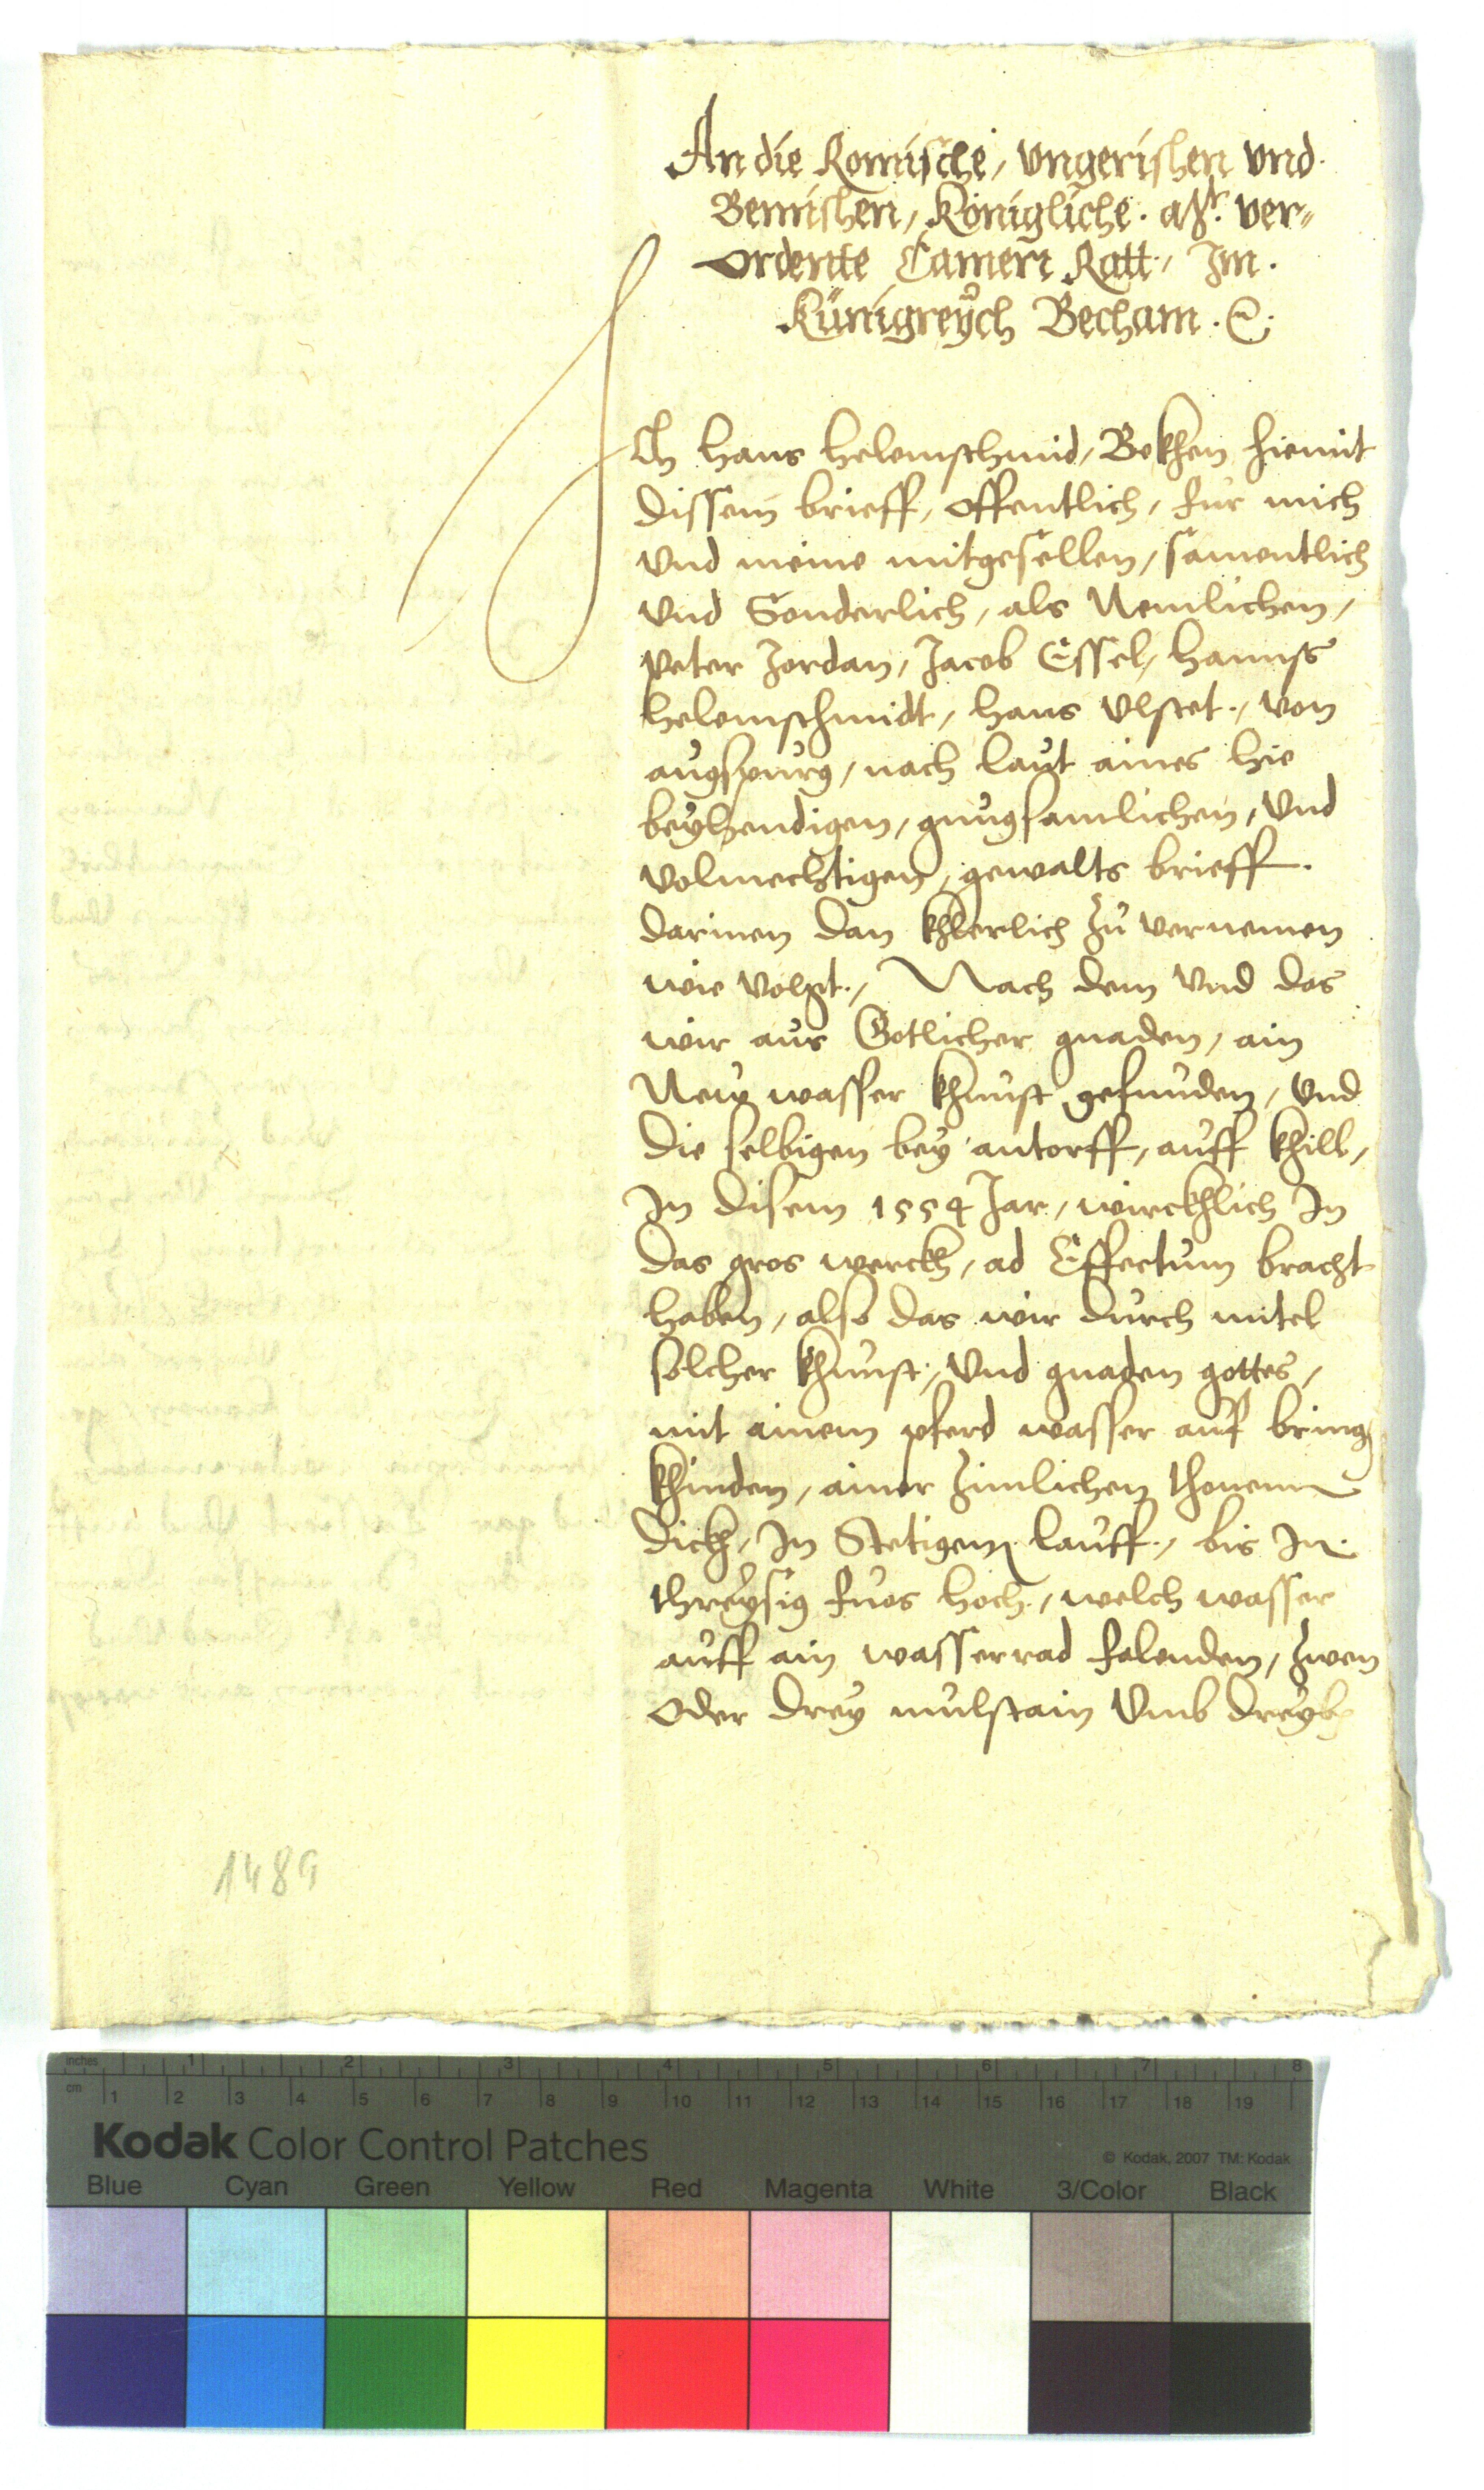 An die Romische, ungerishen und
Bemishen, Königliche. Mt. ver-
ordente Camer Ratt, Im.
Künigreÿch Becham. &.
Ich Hans Helemschmid, Bekhen hiemit
dissem brieff, offentlich, fur mich
und meine mitgesellen, samentlich
und Sonderlich, als Nemlichen,
Peter Jordan, Jacob Essel, Hanns
Helemschmidt, Hans Ulstet., von
augspurg, nach laut aines hie
beyhendigen, gnugsamlichen, und
volmechtigen, gewalts brieff.
darinen dan khlerlich zu vernemen
wie volgt., Nach dem und das
wir aus Gotlicher gnaden, ain
New wasser khunst gefunden, und
die selbigen bey antorff, auff khill,
In disem 1554 Jar, wirckhlich In
das gros werckh, ad Effectum bracht
haben, also das wir durch mitel
solcher khunst, und gnaden gottes,
mit ainem pferd wasser auf bring
khinden, ainer zimlichen thonen
dickh, In Stetigem lauff, bis In
threysig fuos hoch, welch wasser
auff ain wasserrad falenden, zwen
oder drey mulstain umb dreyb
1489
inches 1 2 3 4 5 6 7 8
cm 1 2 3 4 5 6 7 8 9 10 11 12 13 14 15 16 17 18 19
Kodak Color Control Patches
© Kodak, 2007 TM: Kodak
Blue Cyan Green Yellow Red Magenta White 3/Color Black